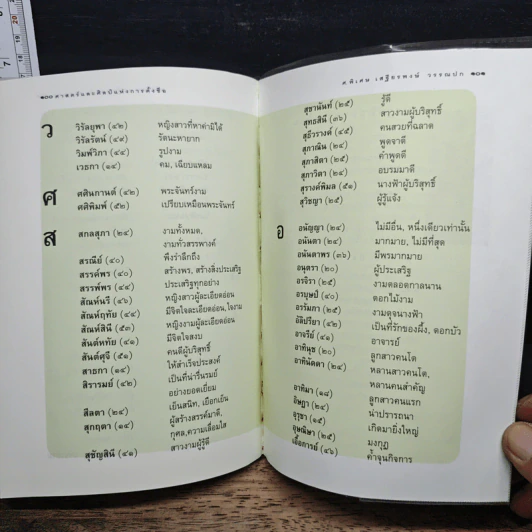 ๑๐๐ ศาสตร์และศิลป์แห่งการตั้งชื่อ
ว
วิรัลยุพา (๔๒) หญิงสาวที่หาค่ามิได้
วิรัลรัตน์ (๔๙) รัตนะหายาก
วิมพ์วิภา (๔๔) รูปงาม
เวธกา (๑๔) คม, เฉียบแหลม
ศ
ศศินกานต์ (๔๒) พระจันทร์งาม
ศศิพิมพ์ (๕๒) เปรียบเหมือนพระจันทร์
ส
สกลสุภา (๒๔) งามทั้งหมด,
งามทั่วสรรพางค์
สรณีย์ (๔๐) พึ่งรำลึกถึง
สรรค์พร (๔๐) สร้างพร, สร้างสิ่งประเสริฐ
สรรพ์พร (๔๔) ประเสริฐทุกอย่าง
สัณห์นรี (๔๖) หญิงสาวผู้ละเอียดอ่อน
สัณห์ฤทัย (๔๔) มีจิตใจละเอียดอ่อน, ใจงาม
สัณห์สินี (๕๓) หญิงงามผู้ละเอียดอ่อน
สันต์หทัย (๔๑) มีจิตใจสงบ
สันต์ศุจี (๕๑) คนดีผู้บริสุทธิ์
สาธกา (๑๔) ให้สำเร็จประสงค์
สิรารมย์ (๔๒) เป็นที่น่ารื่นรมย์
อย่างยอดเยี่ยม
สีลตา (๒๔) เย็นสนิท, เยือกเย็น
สุกฤตา (๑๔) ผู้สร้างสรรค์มาดี,
กุศล,ความเลื่อมใส
สุชัญสินี (๔๑) สาวงามผู้รู้ดี
ศ.พิเศษ เสฐียรพงษ์ วรรณปก ๑๐๑
สุชานันท์ (๒๕) รู้ดี
สุทธสินี (๓๖) สาวงามผู้บริสุทธิ์
สุธีวรางค์ (๔๕) คนสวยที่ฉลาด
สุภาณิน (๒๔) พูดจาดี
สุภาสิตา (๒๕) คำพูดดี
สุภาวิตา (๒๔) อบรมมาดี
สุรางค์พิมล (๕๑) นางฟ้าผู้บริสุทธิ์
สุวิชญา (๒๕) ผู้รู้แจ้ง
อ
อนัญญา (๒๔) ไม่มีอื่น, หนึ่งเดียวเท่านั้น
อนันตา (๒๔) มากมาย, ไม่มีที่สุด
อนันตาพร (๓๖) มีพรมากมาย
อนุตรา (๒๐) ผู้ประเสริฐ
อรจิรา (๒๕) งามตลอดกาลนาน
อรบุษป์ (๔๐) ดอกไม้งาม
อรรัมภา (๒๕) งามดุจนางฟ้า
อัลิปรียา (๔๒) เป็นที่รักของผึ้ง, ดอกบัว
อาจรีย์ (๔๑) อาจารย์
อาทินุช (๒๐) ลูกสาวคนโต
อาทินัดดา (๒๔) หลานสาวคนโต,
หลานคนสำคัญ
อาทิมา (๑๔) ลูกสาวคนแรก
อิษฎา (๒๔) น่าปรารถนา
อุรุชา (๑๕) เกิดมายิ่งใหญ่
อุษณิษา (๒๕) มงกุฎ
เอื้อการย์ (๔๖) ค้ำจุนกิจการ